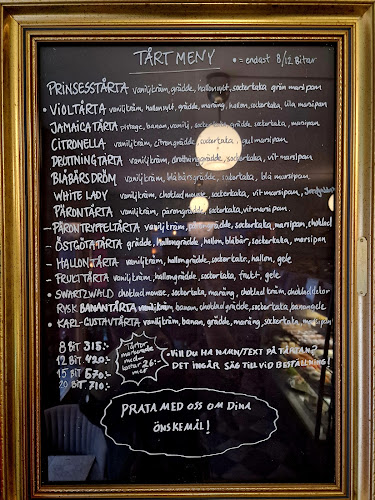 TÅRTMENY • = endast 8/12 Bitar
PRINSESSTÅRTA vaniljkräm, grädde, hallonsylt, sockerkaka grön marsipan
• VIOLTÅRTA vaniljkräm, hallonsylt, grädde, maräng, hallon, sockerkaka, lila marsipan
JAMAICATÅRTA banan, vanilj, grädde, sockerkaka, marsipan
CITRONELLA vaniljkräm, citrongrädde, sockerkaka, gul marsipan
DROTTNINGTÅRTA vaniljkräm, drottninggrädde, sockerkaka, vit marsipan
BLÅBÄRSDRÖM vaniljkräm, blåbärsgrädde, sockerkaka, blå marsipan
WHITE LADY vaniljkräm, chokladmousse, sockerkaka, vit marsipan,
PÄRONTÅRTA vaniljkräm, pärongrädde, sockerkaka, vit marsipan
– PÄRONTRYFFELTÅRTA vaniljkräm, pärongrädde, sockerkaka, marsipan, choklad
– ÖSTGÖTATÅRTA grädde, hallongrädde, hallon, blåbär, sockerkaka, marsipan
– HALLONTÅRTA vaniljkräm, hallongrädde, sockerkaka, hallon, gele
– FRUKTTÅRTA vaniljkräm, hallongrädde, sockerkaka, frukt, gele
• SWARTZWALD chokladmousse, sockerkaka, maräng, chokladkräm, chokladdekor
RYSK BANANTÅRTA vaniljkräm, banan, chokladgrädde, sockerkaka, banangele
• KARL-GUSTAVTÅRTA vaniljkräm, banan, grädde, maräng, sockerkaka, marsipan
8 BIT 315:-
12 BIT 420:-
15 BIT 570:-
20 BIT 710:-
Tårtor markerade med – kostar 26:- mer
• Vill DU HA NAMN/TEXT PÅ TÅRTAN?
DET INGÅR SÄG TILL VID BESTÄLLNING!
PRATA MED OSS OM DINA
ÖNSKEMÅL!